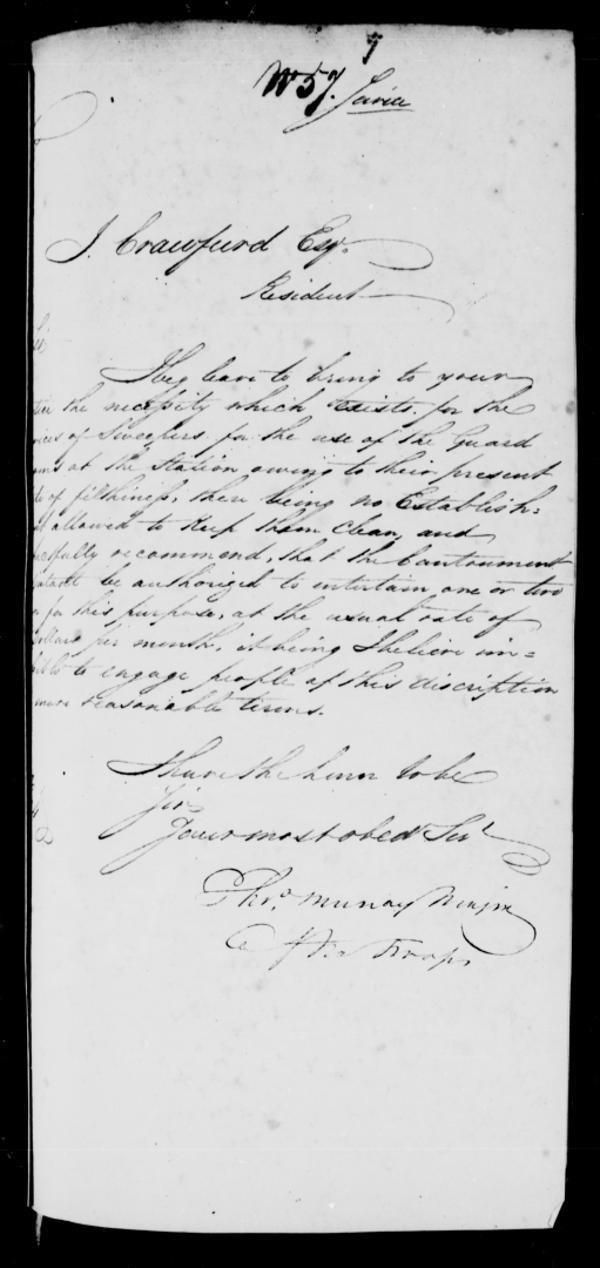 7
No 57.
J. Crawfurd Esqr.
Resident
I beg leave to bring to your
the necessity which exists for the
of Sweepers for the use of the Guard
at the Station owing to their present
of filthiness, there being no Establish=
allowed to keep them clean, and
recommend, that the Cantonment
be authorized to entertain one or two
for this purpose, at the usual rate of
per month, it being I believe im=
to engage people of this discription
more reasonable terms.
I have the honor to be
Sir
Your most obedt Servt
Thos. Murray Major
Troops